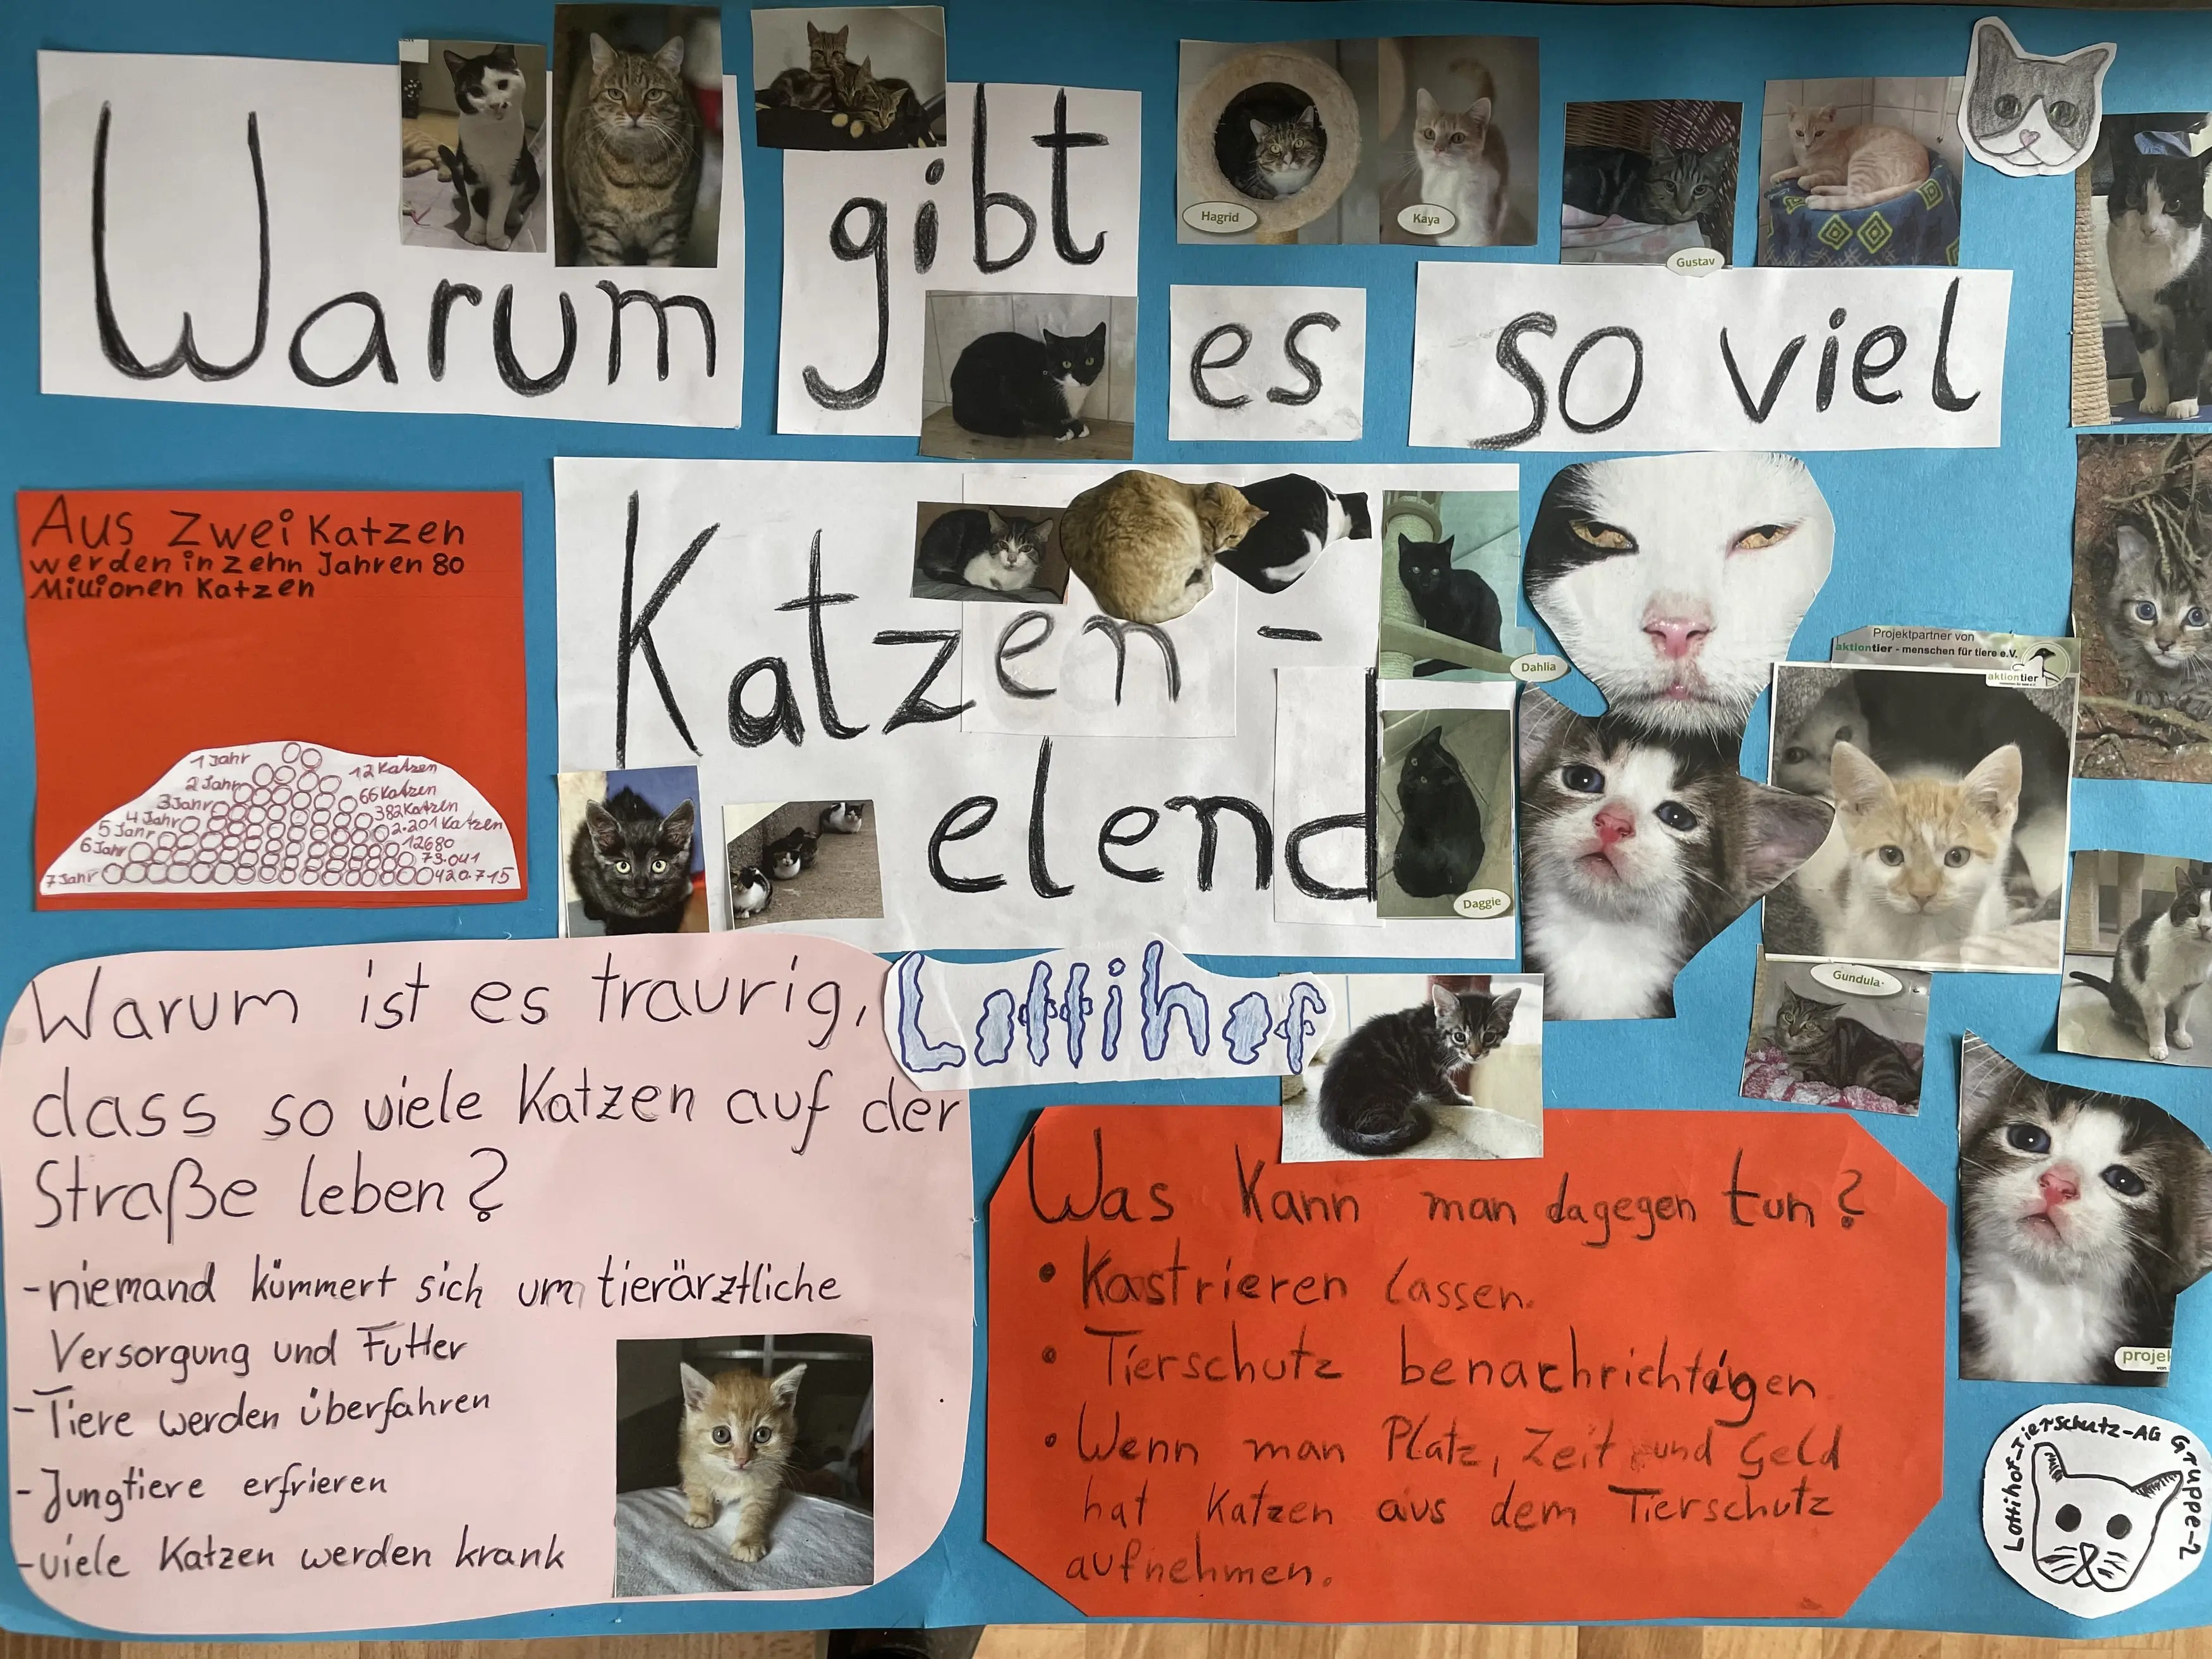 Warum gibt es so viel
Katzen-
elend
Hagrid
Kaya
Gustav
Dahlia
Daggie
Projektpartner von
aktiontier - menschen für tiere e.V.
aktiontier
Gundula
projek
Aus zwei Katzen
werden in zehn Jahren 80
Millionen Katzen
1 Jahr 12 Katzen
2 Jahr 66 Katzen
3 Jahr 382 Katzen
4 Jahr 2.201 Katzen
5 Jahr 12680
6 Jahr 73.041
7 Jahr 420.715
Lottihof
Warum ist es traurig,
dass so viele Katzen auf der
Straße leben?
- niemand kümmert sich um tierärztliche
Versorgung und Futter
- Tiere werden überfahren
- Jungtiere erfrieren
- viele Katzen werden krank
Was kann man dagegen tun?
• Kastrieren lassen.
• Tierschutz benachrichtigen
• Wenn man Platz, Zeit und Geld
hat Katzen aus dem Tierschutz
aufnehmen.
Lottihof-Tierschutz-AG Gruppe-2